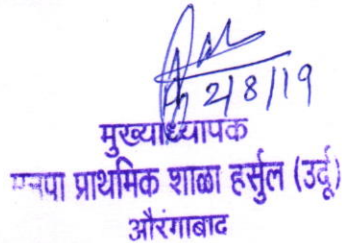 2/8/19
मुख्याध्यापक
मनपा प्राथमिक शाळा हर्सुल (उर्दू)
औरंगाबाद